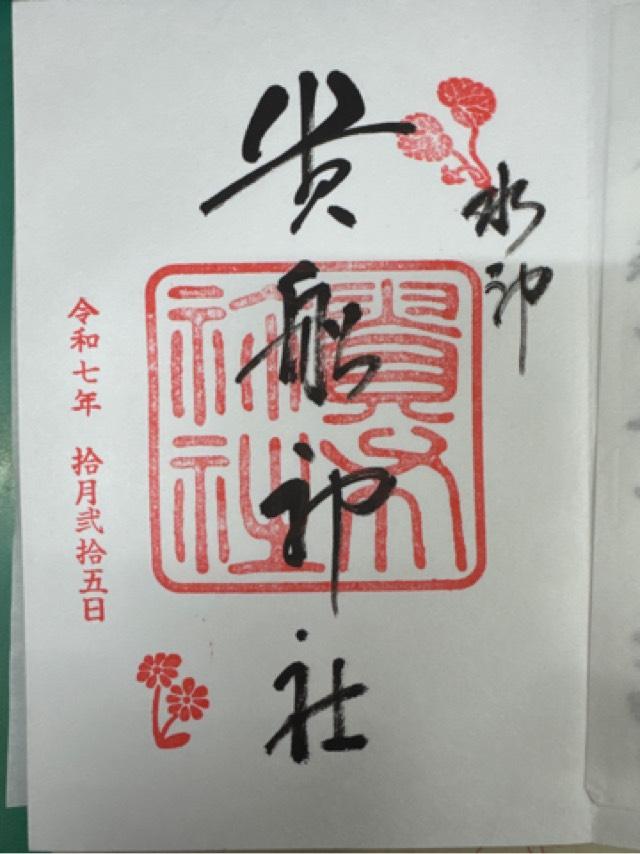 水神
貴船神社
令和七年 拾月弐拾五日